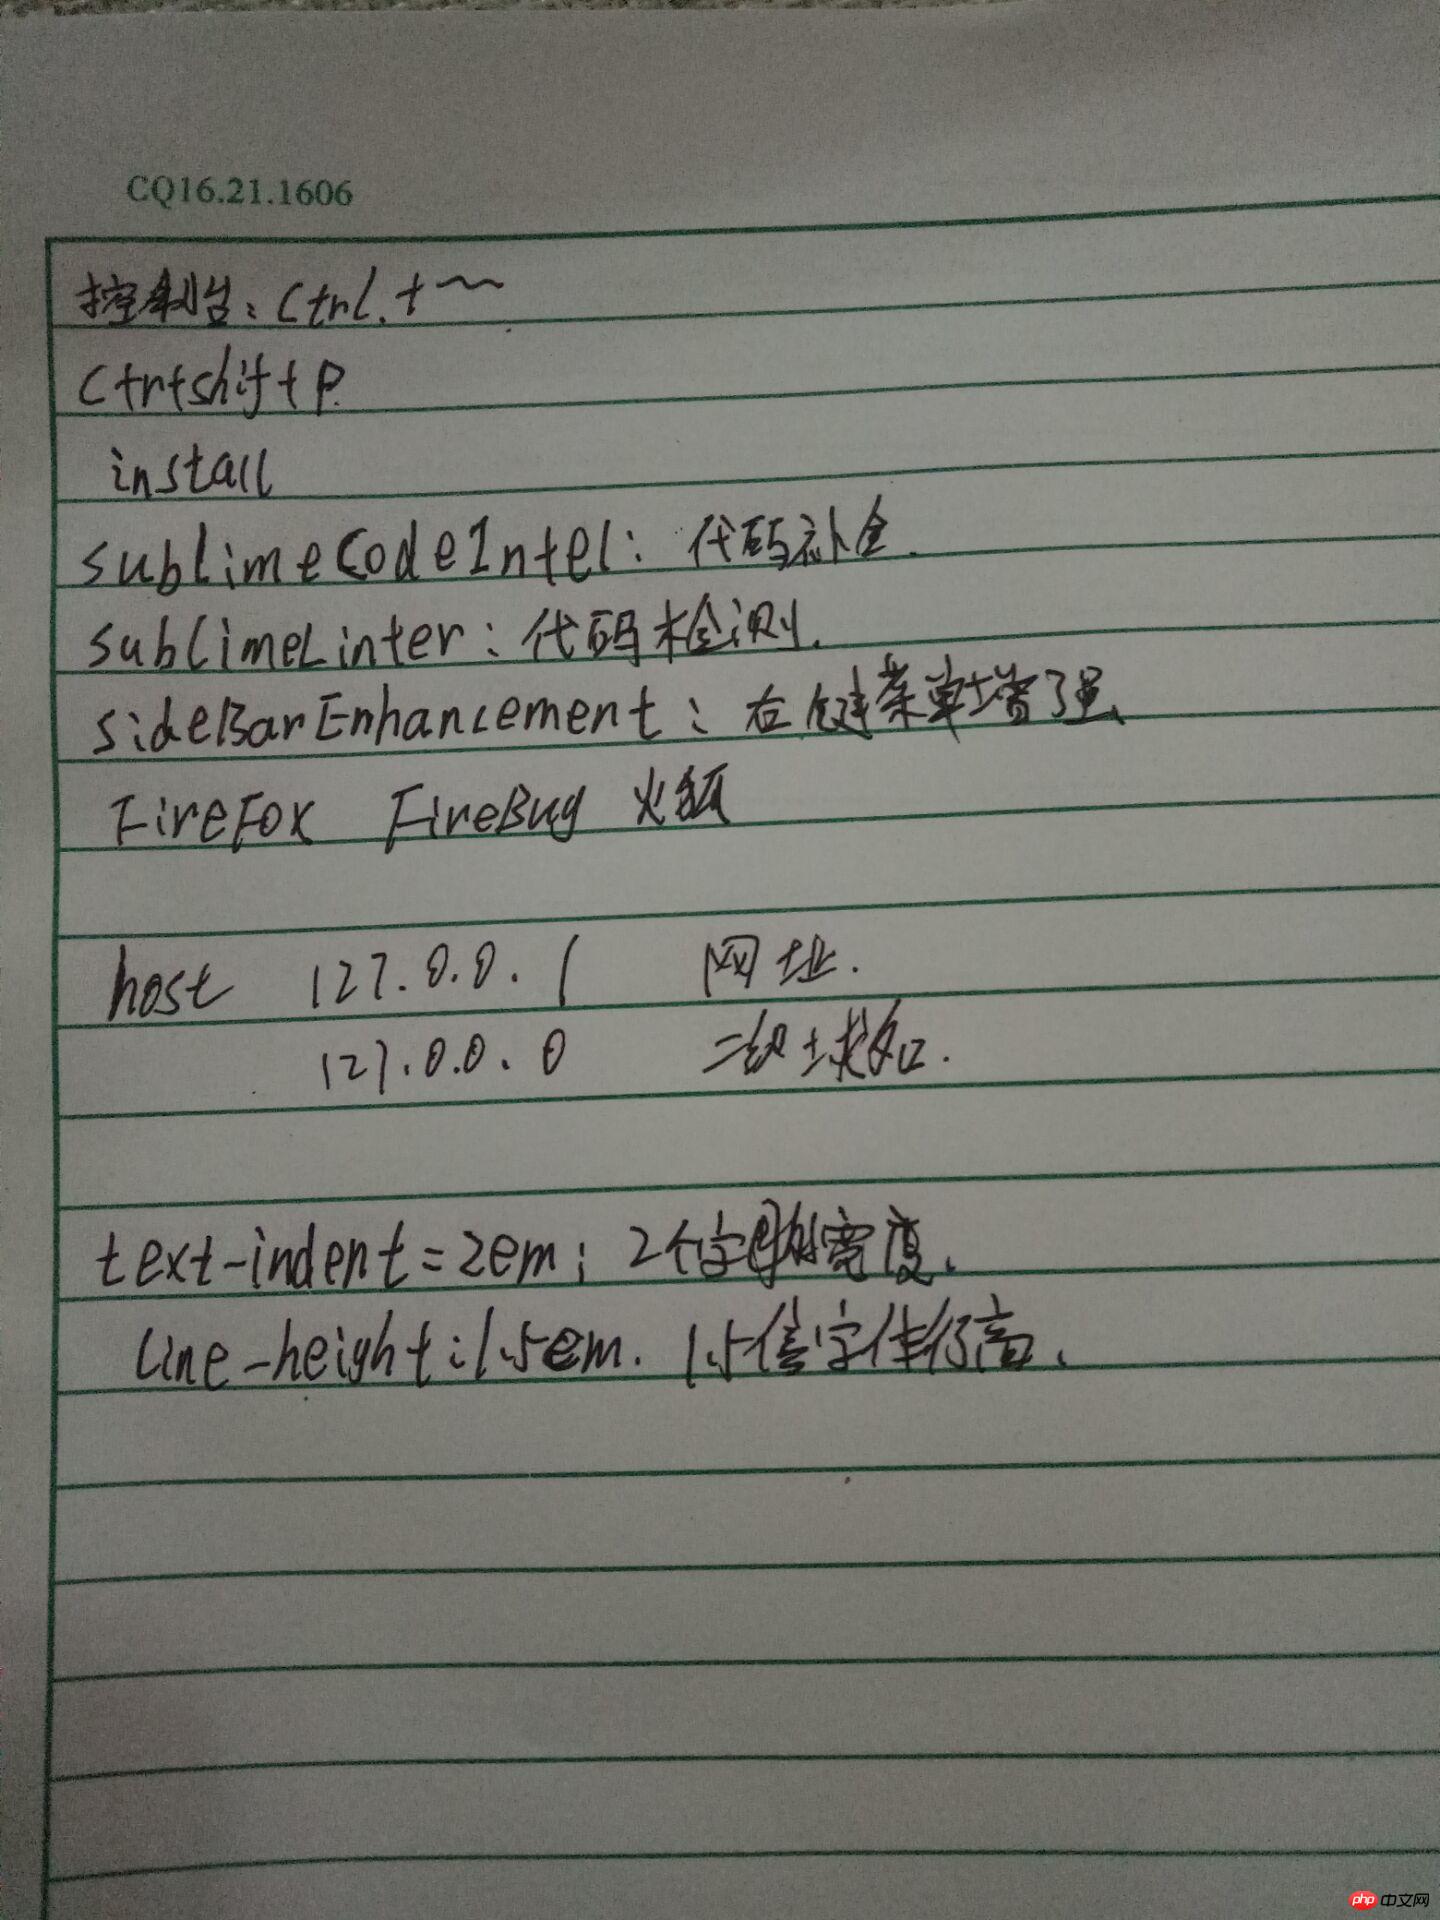 CQ16.21.1606
控制台:Ctrl.+~
Ctr+shift+P.
install
SublimeCodeIntel:代码补全.
SublimeLinter:代码检测.
SideBarEnhancement:右键菜单增强、
FireFox FireBug 火狐
host 127.0.0.1 网址.
127.0.0.0 二级域名.
text-indent=2em; 2个字母的宽度.
line-height:1.5em. 1.5倍字体行高.
php 中文网